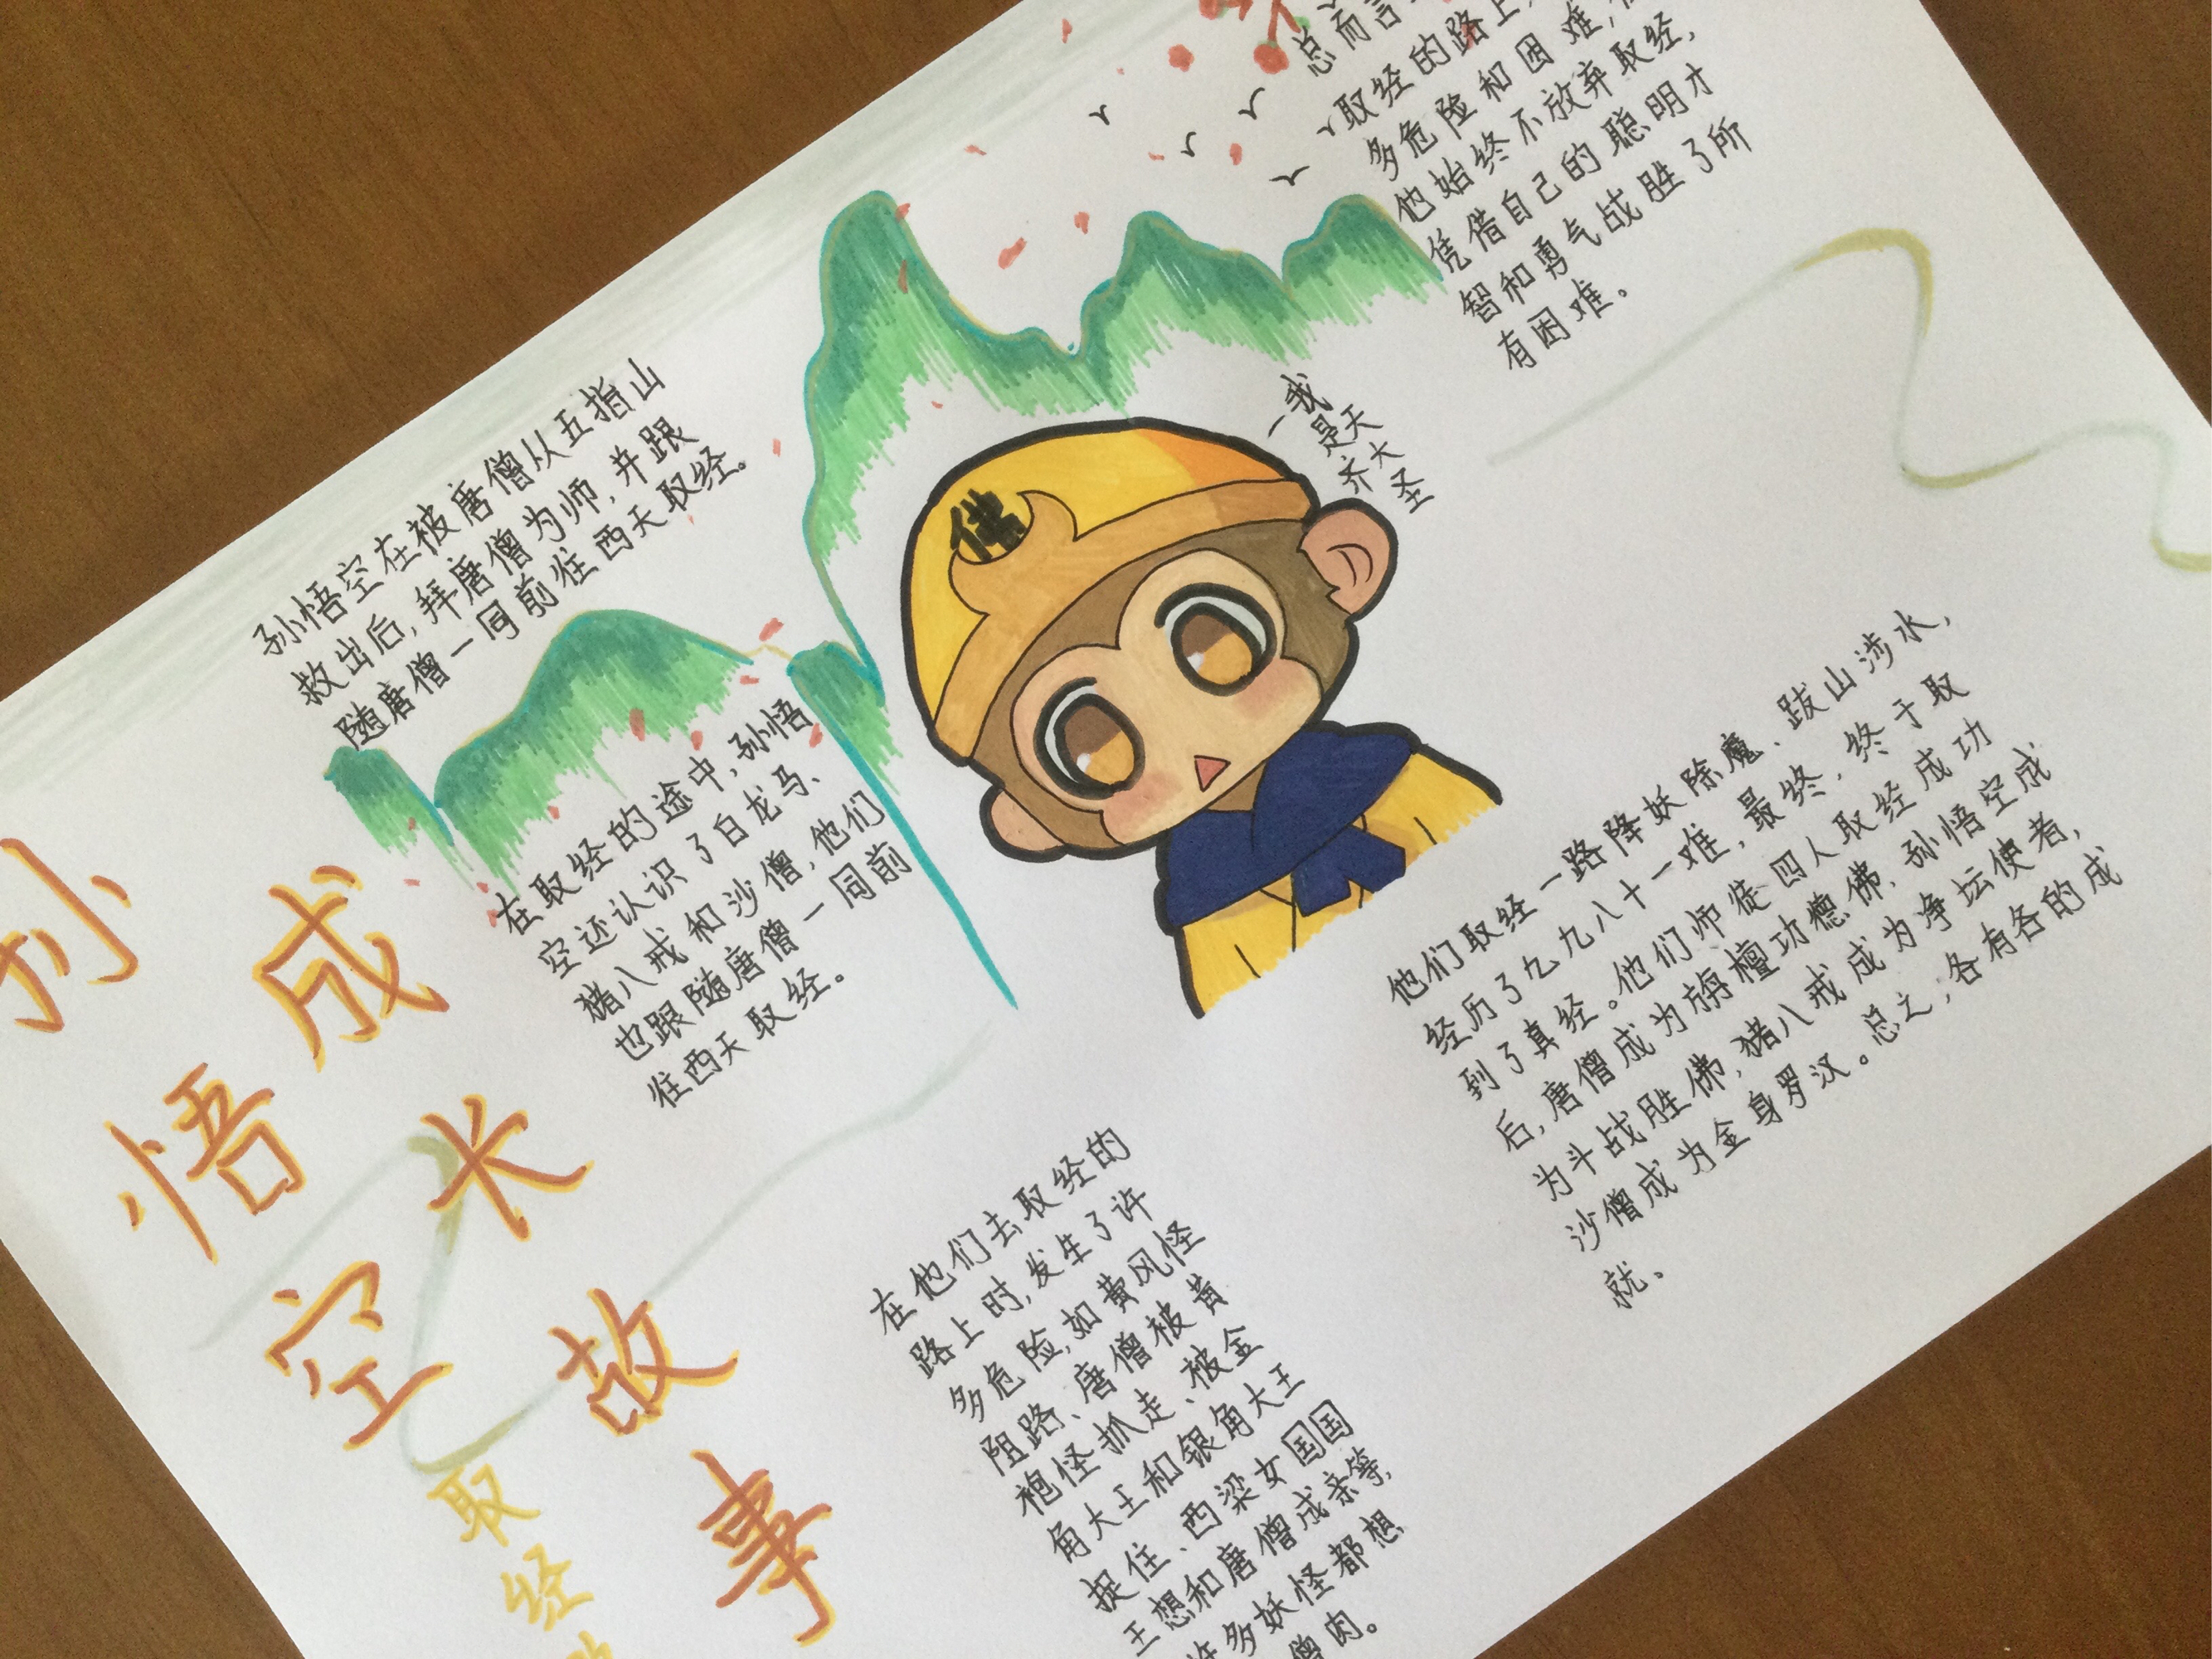 孙悟空
成长故事
取经
孙悟空在被唐僧从五指山
救出后,拜唐僧为师,并跟
随唐僧一同前往西天取经。
在取经的途中,孙悟
空还认识了白龙马、
猪八戒和沙僧,他们
也跟随唐僧一同前
往西天取经。
在他们去取经的
路上时,发生了许
多危险,如黄风怪
阻路、唐僧被黄
袍怪抓走、被金
角大王和银角大王
捉住、西梁女国国
王想和唐僧成亲等,
许多妖怪都想
僧肉。
佛
一我
是天
齐大
圣
他们取经一路降妖除魔、跋山涉水,
经历了九九八十一难,最终,终于取
到了真经。他们师徒四人取经成功
后,唐僧成为旃檀功德佛,孙悟空成
为斗战胜佛,猪八戒成为净坛使者,
沙僧成为金身罗汉。总之,各有各的成
就、
总而言
取经的路上
多危险和困难,
他始终不放弃取经,
凭借自己的聪明才
智和勇气战胜了所
有困难。